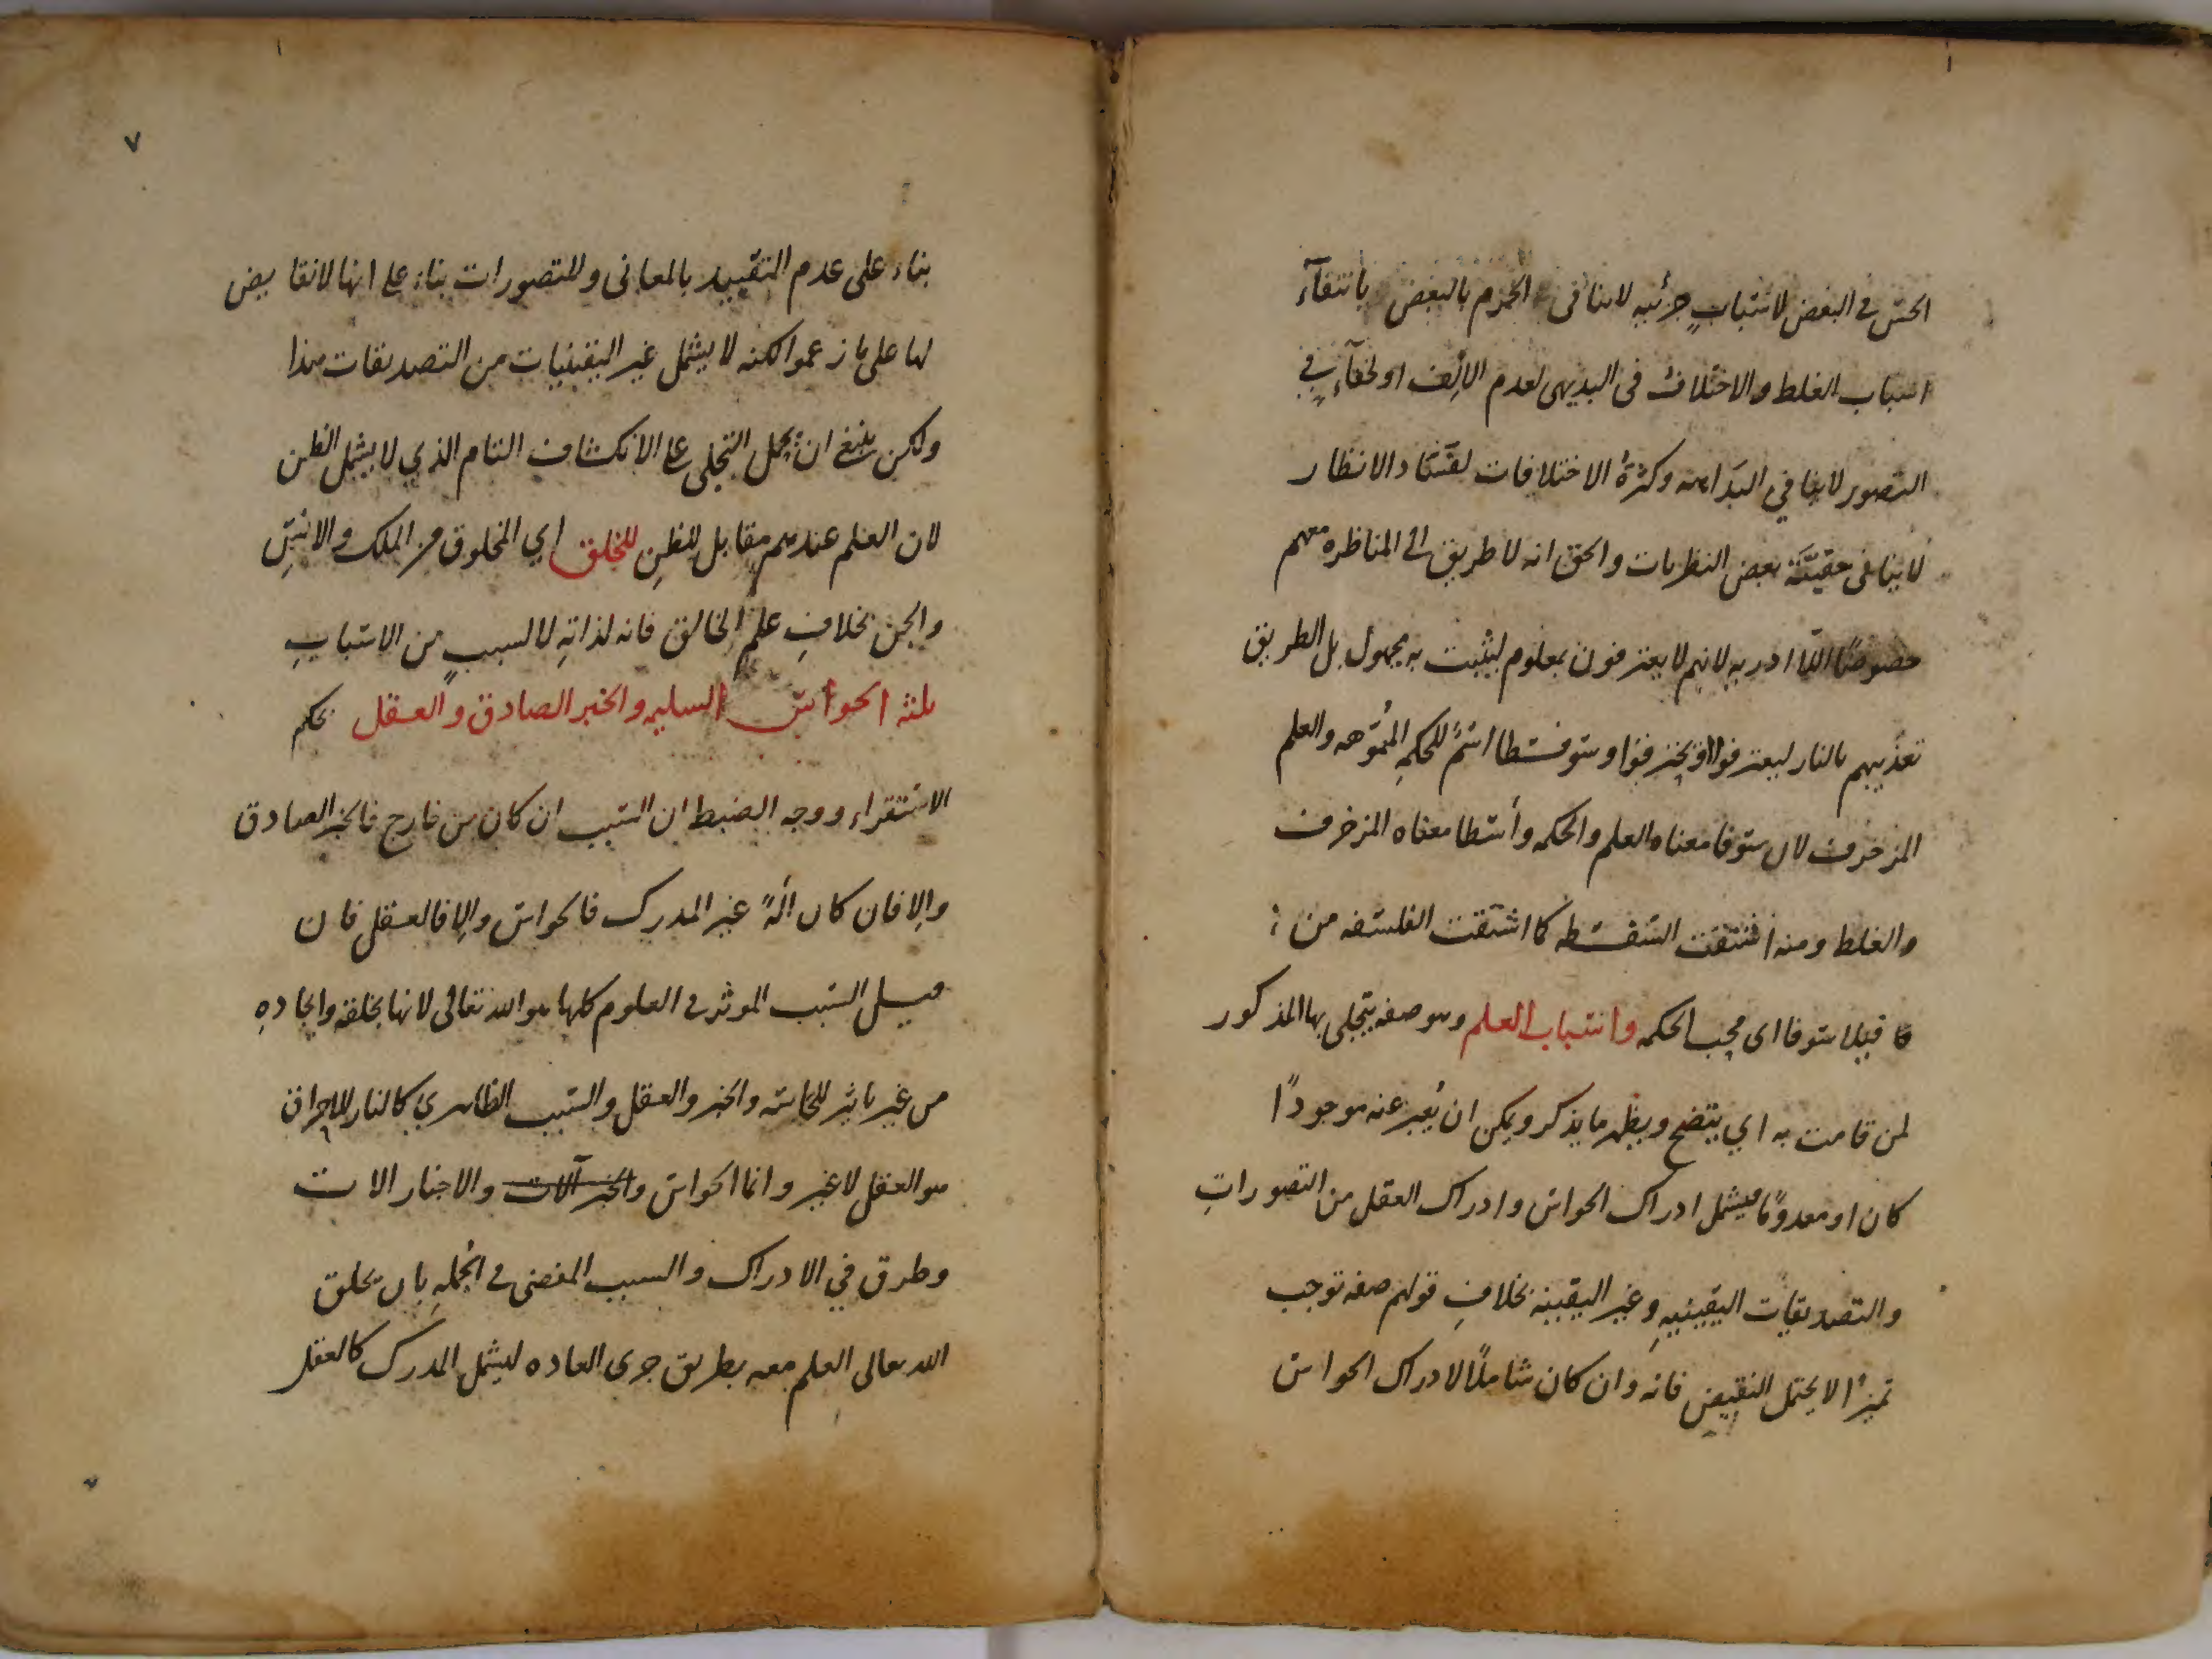 الحس في البعض لاسباب جزئيه لاينافى الجزم بالبعض بانتفآء
اسباب الغلط والاختلاف فى البديهى لعدم الالف او لخفآء في
التصور لاينافي البداهة وكثرة الاختلافات لفساد الانظار
لاينافى حقيّة بعض النظريات والحق انه لا طريق الى المناظره معهم
خصوصًا اللاادريه لانهم لايعترفون بمعلوم ليثبت به مجهول بل الطريق
تعذيبهم بالنار ليعترفوا او يحترقوا وسوفسطا اسمٌ للحكمة المموّهه والعلم
المزخرف لان سوفا معناه العلم والحكمه وأسطا معناه المزخرف
والغلط ومنه اشتقت السفسطه كما اشتقت الفلسفه من
فاقيلا سوفا اى محب الحكمه واسباب العلم وهو صفه يتجلى بها المذكور
لمن قامت به اي يتضح ويظهر مايذكر ويمكن ان يُعبر عنه موجودًا
كان او معدومًا فيشمل ادراك الحواس وادراك العقل من التصورات
والتصديقات اليقينيه وغير اليقينيه بخلاف قولهم صفه توجب
تميزًا لا يحتمل النقيض فانه وان كان شاملًا لادراك الحواس
٧
بناء على عدم التقييد بالمعانى وللتصورات بناء على انها لا نقايض
لها على ما زعموا لكنه لا يشمل غير اليقينيات من التصديقات هذا
ولكن ينبغى ان يحمل التجلى على الانكشاف التام الذي لا يشمل الظن
لان العلم عندهم مقابل للظن للخلق اي المخلوق من الملك والانس
والجن بخلاف علم الخالق فانه لذاته لا لسبب من الاسباب
ثلثه الحواس السليمه والخبر الصادق والعقل بحكم
الاستقراء ووجه الضبط ان السبب ان كان من خارج فالخبر الصادق
والا فان كان الةً غير المدرك فالحواس والا فالعقل فان
قيل السبب الموثر في العلوم كلها هو الله تعالى لانها بخلقه وايجاده
من غير تاثير للحاسه والخبر والعقل والسبب الظاهري كالنار للاحراق
هو العقل لا غير وانما الحواس والخبر آلات والاخبار الات
وطرق في الادراك والسبب المفضى في الجمله بان يخلق
الله تعالى العلم معه بطريق جرى العاده ليشمل المدرك كالعقل